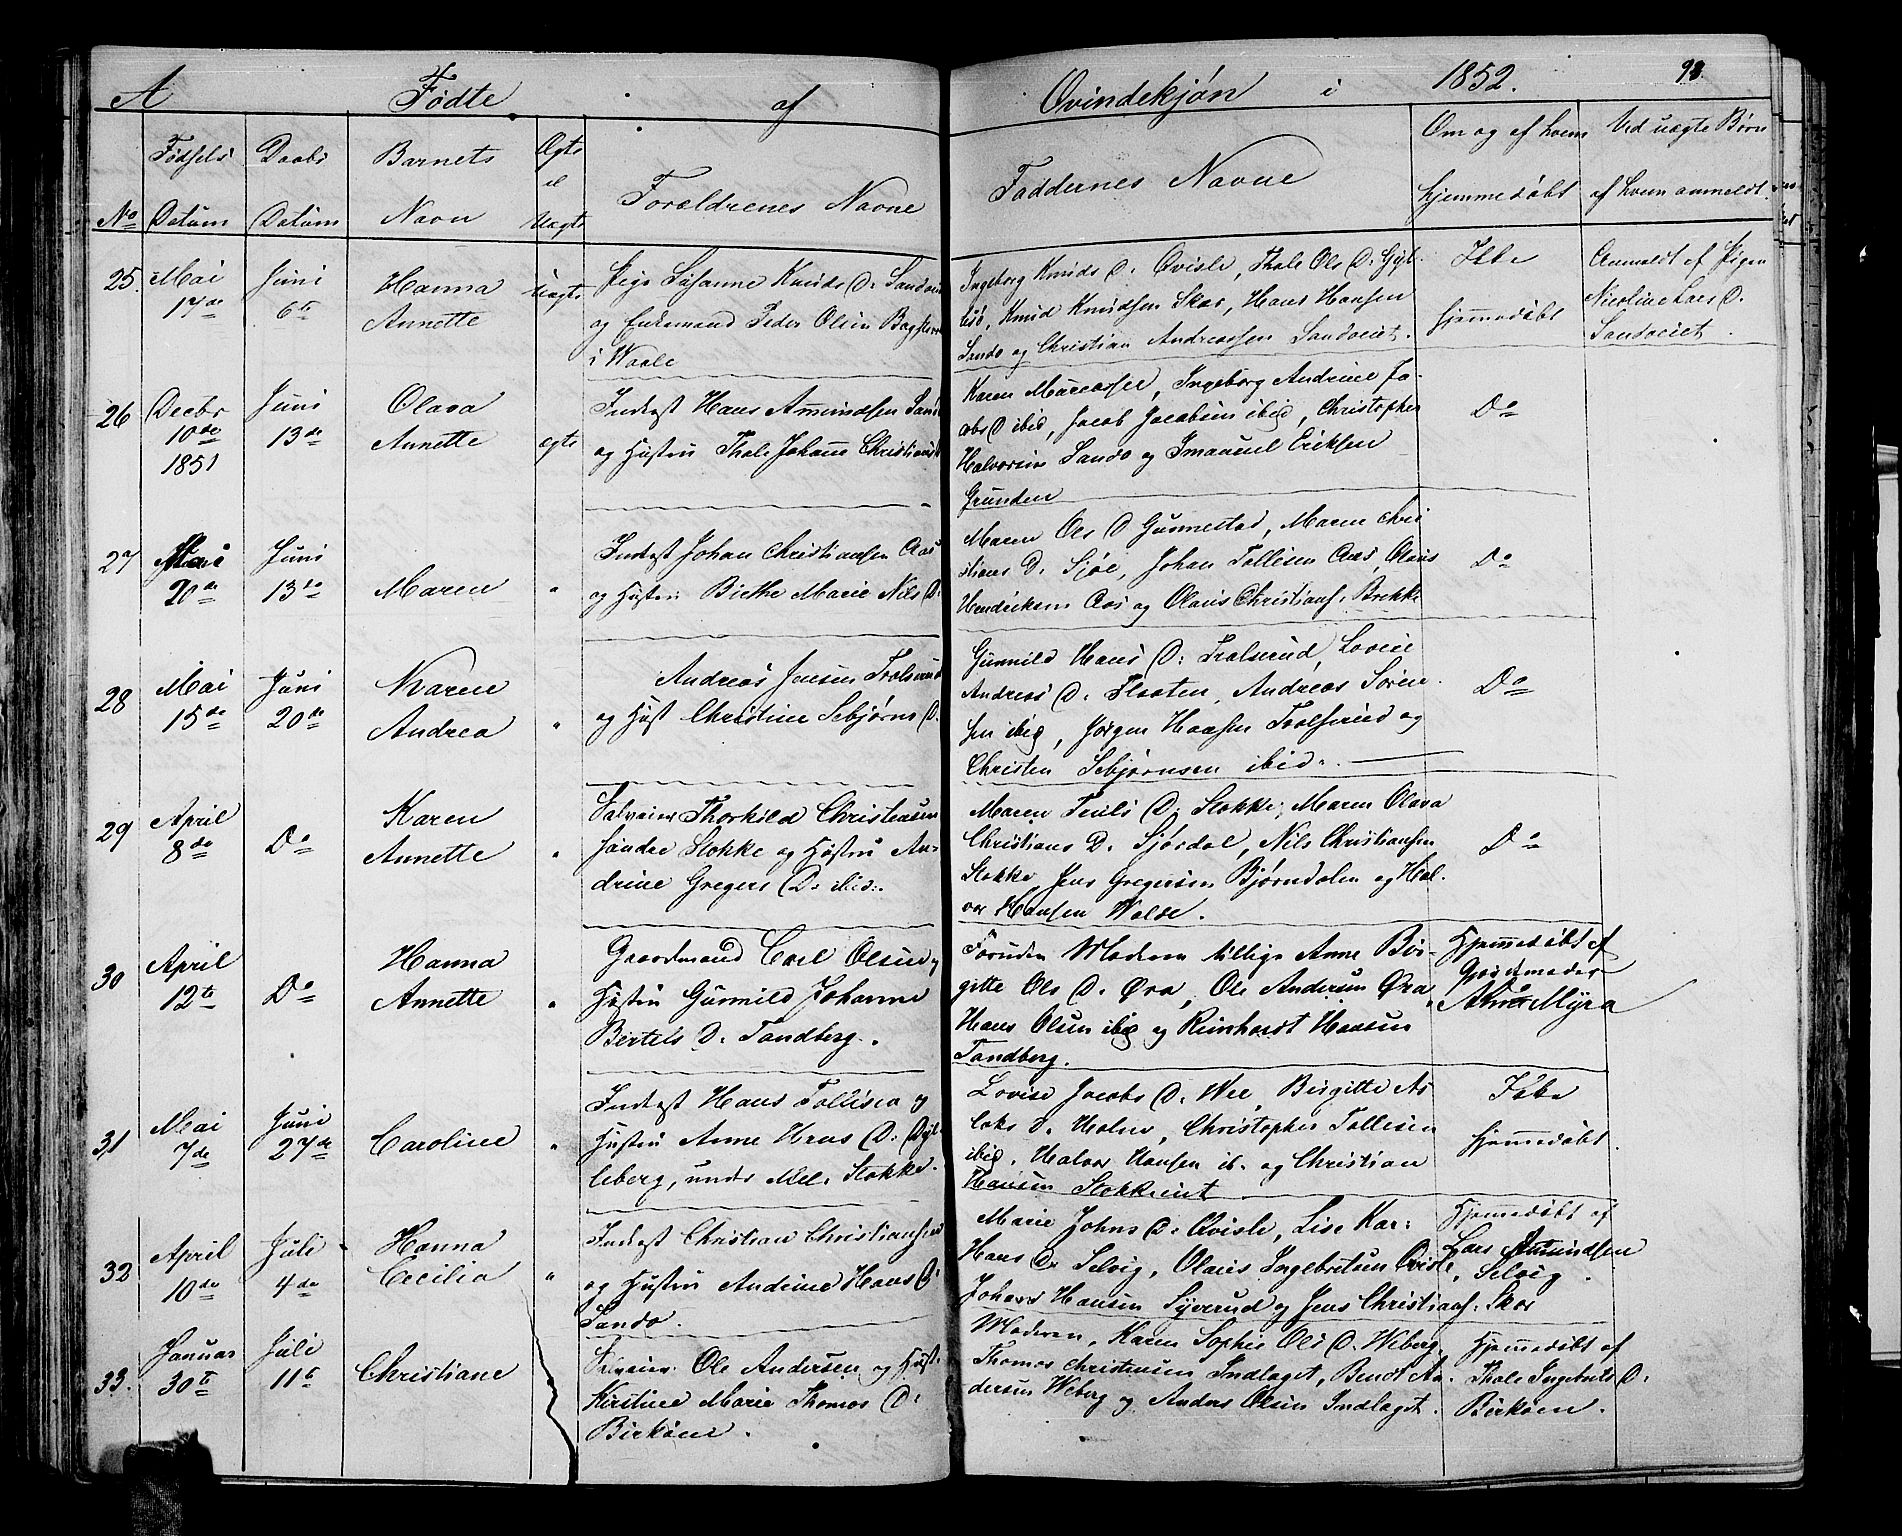 A Fødte af Qvindekjøn i 1852. 98.
No
Fødsels Datum
Daabs Datum
Barnets Navn
Ægte el Uægte
Forældrenes Navne
Faddernes Navne
Om og af hvem hjemmedøbt
Ved uægte Børn af hvem anmeldt
25.
Mai
17de
Juni
6te
Hanna
Annette
Uægte
Pige Susanne Knuds D. Sandveiet
og Enkemand Peder Olsen
i Waale
Ingeborg Knuds D. Qvisle, Thale Ols D.
Knud Knudsen Skar, Hans Hansen
Sando og Christian Andreassen Sandveiet.
Ikke
hjemmedøbt
Anmeldt af Pigen
Nicoline Lars D.
Sandveiet.
26
Decbr
10de
1851
Juni
13de
Olava
Annette
ægte
Inderst Hans Amundsen Sand
og Hustru Thale Johane Christians D
Karen Ingeborg Andrine Ja-
cobs D ibid, Jacob Jacobsen ibid, Christopher
Halvorsen Sando og Imanuel Eriksen
Grunden
Do
27
Mai
20de
Juni
13de
Maren
"
Inderst Johan Christiansen Aas
og Hustru Birthe Marie Nils D.
Maren Ols D Gunnestad, Maren Chri-
stians D. Sjøe, Johan Tollisen Aas, Olaus
Hendriksen Aas og Olaus Christians. Brekke
Do
28
Mai
15de
Juni
20de
Karen
Andrea
"
Andreas Jensen Trolsrud
og Hust Christine Sebjørns D.
Gunnild Hans D. Trolsrud, Lovise
Andreas D. Flaaten, Andreas Søren-
sen ibid, Jørgen Hansen Trolsrud og
Christen Sebjørnsen ibid.
Do
29
April
8de
Do
Karen
Annette
"
Selveier Thorkild Christensen
Søndre Stokke og Hustru An-
drine Gregers D. ibid.
Maren Truls D. Stokke, Maren Olava
Christians D. Sjørdal, Nils Christiansen
Stokke Jens Gregersen Bjørndalen og Hal-
vor Hansen Wolde.
Do
30
April
12te
Do
Hanna
Annette
"
Gaardmand Carl Olsen og
Hustru Gunnild Johanne
Bertels D. Tandberg.
Foruden Moderen tillige Anne Bir-
gitte Ols D. Øra, Ole Andersen Øra,
Hans Olsen ibid og Reinhardt Hansen
Tandberg.
Hjemmedøbt af
Gjordemoder
Myra
31
Mai
7de
Juni
27de
Caroline
"
Inderst Hans Tollisen og
Hustru Anne Hans D.
leberg, under Mel. Stokke.
Lovise Jacobs D. Wee, Birgitte As-
laks D. Holm, Christopher Tollisen
ibid, Halvor Hansen ib. og Christian
Hansen Stokkeeiet
Ikke
hjemmedøbt.
32
April
10de
Juli
4de
Hanna
Cecilia
"
Inderst Christian Christiansen
og Hustru Andrine Hans D.
Sando.
Marie Johns D. Qvisle, Lise Kar:
Hans D. Selvig, Olaus Ingebretsen Qvisle,
Johan Hansen Syverud og Jens Christians: Skar
Hjemmedøbt af
Lars Amundsen
Selvig.
33.
Januar
30te
Juli
11te
Christiane
Selveier Ole Andersen og Hust.
Kirstine Marie Thomas D.
Birkøen.
Moderen, Karen Sophie Ols D. Weberg,
Thomas Christensen Indlaget, Bendt An-
dersen Weberg og Anders Olsen Indlaget.
Hjemmedøbt af
Thale Ingebrets D.
Birkøen.